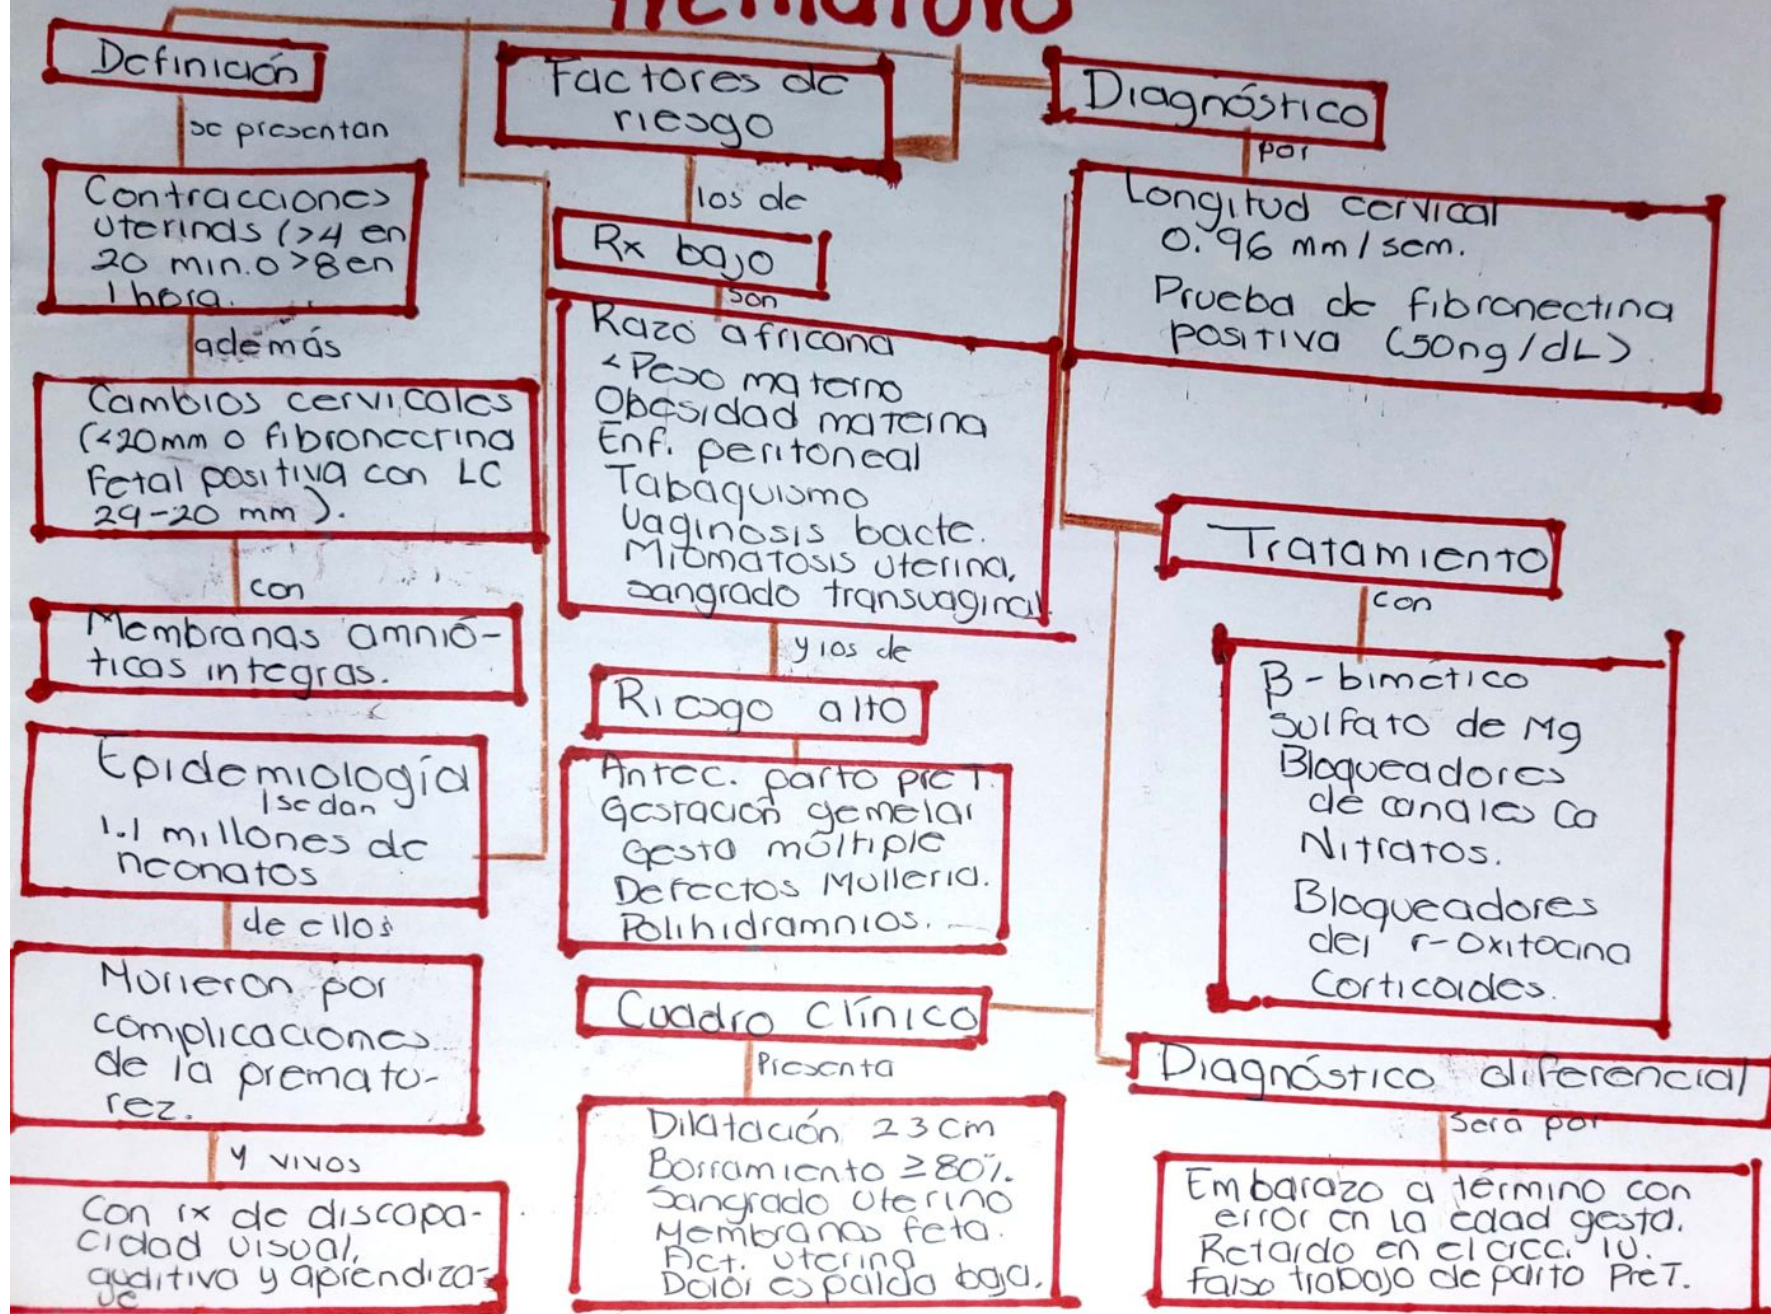 Prematuro
Definición
se presentan
Contracciones
uterinas (>4 en
20 min. o >8 en
1 hora.
además
Cambios cervicales
(<20mm o fibronectina
Fetal positiva con LC
29-20 mm).
con
Membranas amnió-
ticas integras.
Epidemiología
se dan
1.1 millones de
neonatos
de ellos
Murieron por
complicaciones
de la prematu-
rez.
y vivos
Con rx de discapa-
cidad visual,
auditiva y aprendiza-
je
Factores de
riesgo
los de
Rx bajo
son
Raza africana
<Peso materno
Obesidad materna
Enf. peritoneal
Tabaquismo
Vaginosis bacte.
Miomatosis uterina,
sangrado transvaginal.
y los de
Riesgo alto
Antec. parto preT.
Gestación gemelar
Gesta múltiple
Defectos Mulleria.
Polihidramnios.
Cuadro Clínico
Presenta
Dilatación 23cm
Borramiento ≥80%.
Sangrado uterino
Membranas feta.
Act. uterina
Dolor espalda baja.
Diagnóstico
por
Longitud cervical
0.96 mm/sem.
Prueba de fibronectina
positiva (50ng/dL)
Tratamiento
con
B-bimético
Sulfato de Mg
Bloqueadores
de canales Ca
Nitratos.
Bloqueadores
del r-oxitocina
Corticoides.
Diagnóstico diferencial
Será por
Embarazo a término con
error en la edad gesta.
Retardo en el crec. IU.
Falso trabajo de parto PreT.